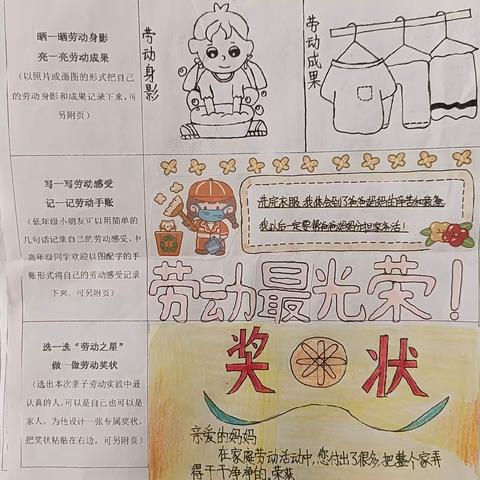 晒一晒劳动身影
亮一亮劳动成果
(以照片或画图的形式把自己
的劳动身影和成果记录下来,可
另附页)
劳动身影
劳动成果
写一写劳动感受
记一记劳动手账
(低年级小朋友可以用简单的
几句话记录自己的劳动感受,中
高年级同学欢迎以图配字的手
账形式将自己的劳动感受记录
下来,可另附页)
洗完衣服,我体会到了爸爸妈妈的辛苦和
我以后一定要帮爸爸妈妈分担家务活!
劳动最光荣!
选一选“劳动之星”
做一做劳动奖状
(选出本次亲子劳动实践中最
认真的人,可以是自己也可以是
家人,为他设计一张专属奖状,
把奖状粘贴在右边,可另附页)
奖状
亲爱的妈妈
在家庭劳动活动中,您付出了很多,把整个家弄
得干干净净的,荣获